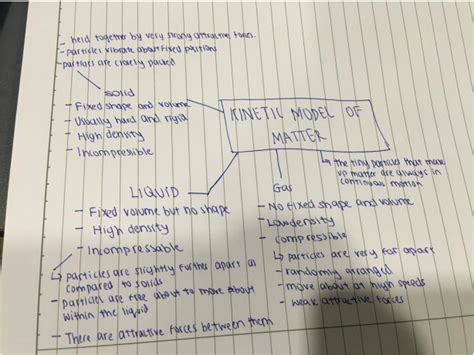 - held together by very strong attractive forces.
- particles vibrate about fixed positions
- particles are closely packed
Solid
- Fixed shape and volume
- Usually hard and rigid
- High density
- Incompressible
KINETIC MODEL OF
MATTER
the tiny particles that make
up matter are always in
continuous motion
LIQUID
- Fixed volume but no shape
- High density
- Incompressable
particles are slightly further apart as
compared to solids
- particles are free about to move about
within the liquid
- There are attractive forces between them
Gas
- No fixed shape and volume
- Low density
- compressible
particles are very far apart
- randomly arranged
- move about at high speeds
- weak attractive forces